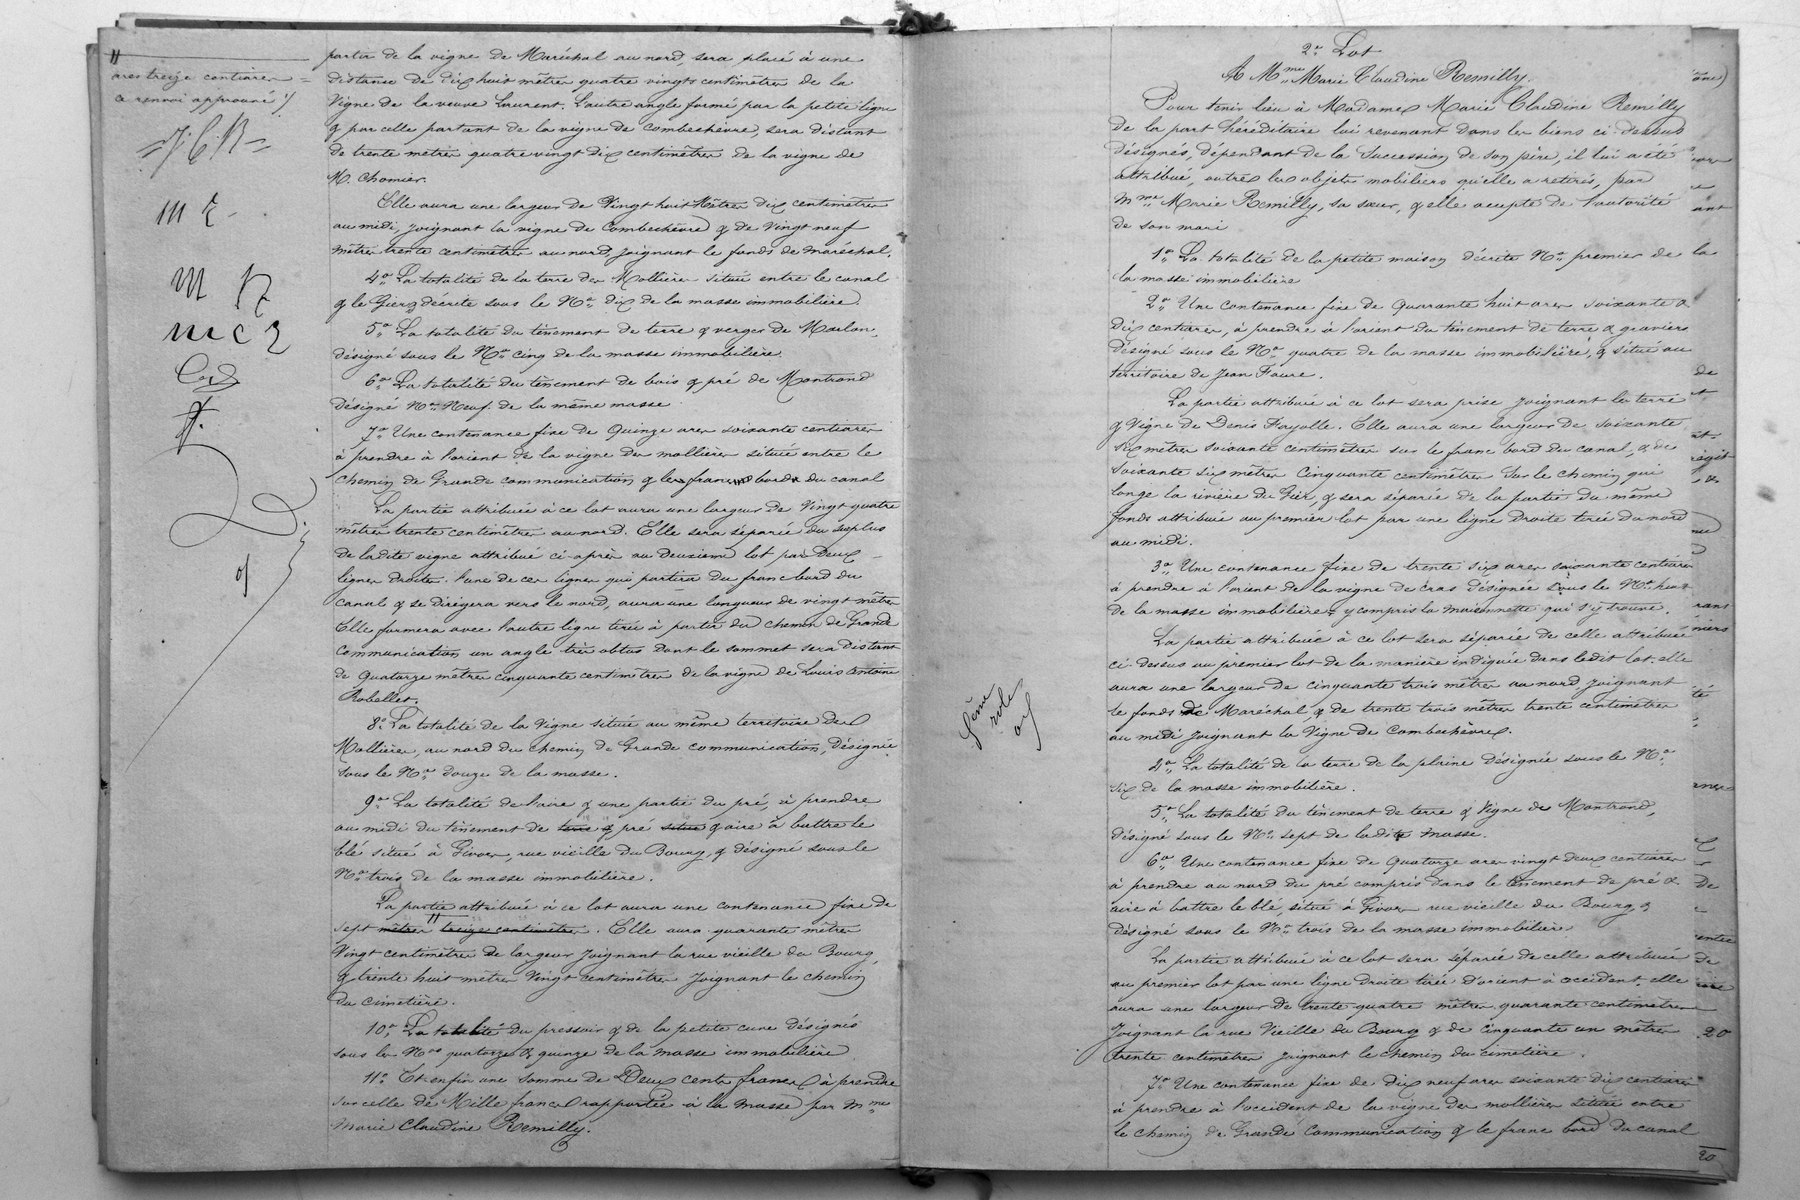 ares treize centiares =
ce renvoi approuvé ./
= J. C. R =
m R
M R
m c R
partir de la vigne de Maréchal au nord sera placé à une
distance de dix huit mètres quatre vingts centimètres de la
Vigne de la veuve Laurent. L'autre angle formé par la petite ligne
& par celle partant de la vigne de Combechèvre sera distant
de trente mètres quatre vingt dix centimètres de la vigne de
M. Chomier.
Elle aura une largeur de Vingt huit Mètres dix centimètres
au midi, joignant la vigne de Combechèvre & de Vingt neuf
mètres trente centimètres au nord, joignant le fonds de Maréchal.
4° La totalité de la terre des Mollières située entre le canal
& le Gier, décrite sous le N° dix de la masse immobilière.
5° La totalité du tènement de terre & verger de Moulon,
désigné sous le N° cinq de la masse immobilière.
6° La totalité du tènement de bois & pré de Montrond
désigné N° Neuf de la même masse
7° Une contenance fixe de Quinze ares soixante centiares
à prendre à l'orient de la vigne des mollières située entre le
chemin de Grande communication & les francs bords du canal
La partie attribuée à ce lot aura une largeur de Vingt quatre
mètres trente centimètres au nord. Elle sera séparée du surplus
de ladite vigne attribué ci-après au deuxième lot par deux
lignes droites. l'une de ces lignes qui partira du franc bord du
canal & se dirigera vers le nord, aura une longueur de vingt mètres
Elle formera avec l'autre ligne tirée à partir du chemin de Grande
communication un angle très obtus dont le sommet sera distant
de Quatorze mètres cinquante centimètres de la vigne de Louis Antoine
Robellet.
8° La totalité de la Vigne située au même territoire des
Mollières, au nord du chemin de Grande communication, désignée
sous le N° douze de la masse.
9° La totalité de l'aire & une partie du pré, à prendre
au midi du tènement de terre & pré situé & aire à battre le
blé situé à Givors, rue vieille du Bourg, & désigné sous le
N° trois de la masse immobilière.
La partie attribuée à ce lot aura une contenance fixe de
sept mètres treize centimètres. Elle aura quarante mètres
Vingt centimètres de largeur joignant la rue vieille du Bourg,
& trente huit mètres Vingt centimètres joignant le chemin
du cimetière.
10° La totalité du pressoir & de la petite cuve désignés
sous les Nos quatorze & quinze de la masse immobilière
11° Et enfin une somme de Deux cents francs à prendre
sur celle de Mille francs rapportée à la masse par Mme
Marie Claudine Remilly.
5ème
role
2e Lot
A Mme Marie Claudine Remilly.
Pour tenir lieu à Madame Marie Claudine Remilly
de la part héréditaire lui revenant dans les biens ci-dessus
désignés, dépendant de la succession de son père, il lui a été
attribué, outre les objets mobiliers qu'elle a retirés, par
Mme Marie Remilly, sa sœur, & elle accepte de l'autorité
de son mari
1° La totalité de la petite maison décrite N° premier de la
la masse immobilière
2° Une contenance fixe de Quarante huit ares soixante &
dix centiares, à prendre à l'orient du tènement de terre & graviers
désigné sous le N° quatre de la masse immobilière, & situé au
territoire de Jean Faure.
La partie attribuée à ce lot sera prise joignant les terre
& Vigne de Denis Fayolle. Elle aura une largeur de soixante
six mètres soixante centimètres sur le franc bord du canal, & de
soixante six mètres cinquante centimètres sur le chemin qui
longe la rivière du Gier, & sera séparée de la partie du même
fonds attribuée au premier lot par une ligne droite tirée du nord
au midi.
3° Une contenance fixe de trente six ares soixante centiares
à prendre à l'orient de la vigne de cras désignée sous le N° huit
de la masse immobilière, y compris la maisonnette qui s'y trouve.
La partie attribuée à ce lot sera séparée de celle attribuée
ci-dessus au premier lot de la manière indiquée dans ledit lot. elle
aura une largeur de cinquante trois mètres au nord joignant
le fonds de Maréchal, & de trente trois mètres trente centimètres
au midi joignant la Vigne de Combechèvre.
4° La totalité de la terre de la plaine désignée sous le N°
six de la masse immobilière.
5° La totalité du tènement de terre & Vigne de Montrond,
désigné sous le N° sept de la dite masse.
6° Une contenance fixe de Quatorze ares vingt deux centiares
à prendre au nord du pré compris dans le tènement de pré &
aire à battre le blé, situé à Givors rue vieille du Bourg, &
désigné sous le N° trois de la masse immobilière.
La partie attribuée à ce lot sera séparée de celle attribuée
au premier lot par une ligne droite tirée d'orient à occident. elle
aura une largeur de trente quatre mètres quarante centimètres
joignant la rue Vieille du Bourg & de cinquante un mètres
trente centimètres joignant le chemin du cimetière.
7° Une contenance fixe de dix neuf ares soixante dix centiares
à prendre à l'occident de la vigne des mollières située entre
le chemin de Grande Communication & le franc bord du canal
20
20